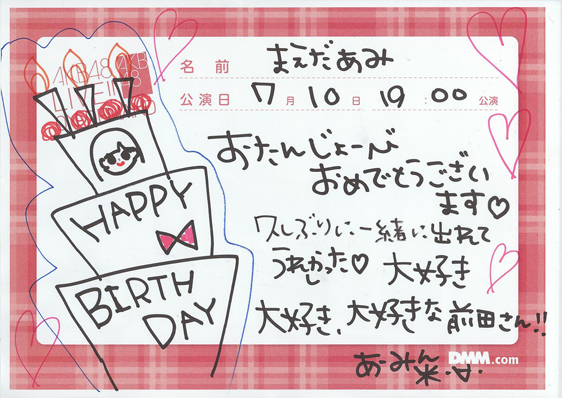 AKB48
LIVE!!
名前 まえだあみ
公演日 7月10日 19:00公演
おたんじょーび
おめでとうござい
ます♡
久しぶりに一緒に出れて
うれしかった♡ 大好き
大好き、大好きな前田さん!!
あーみん
DMM.com
HAPPY
BIRTH
DAY